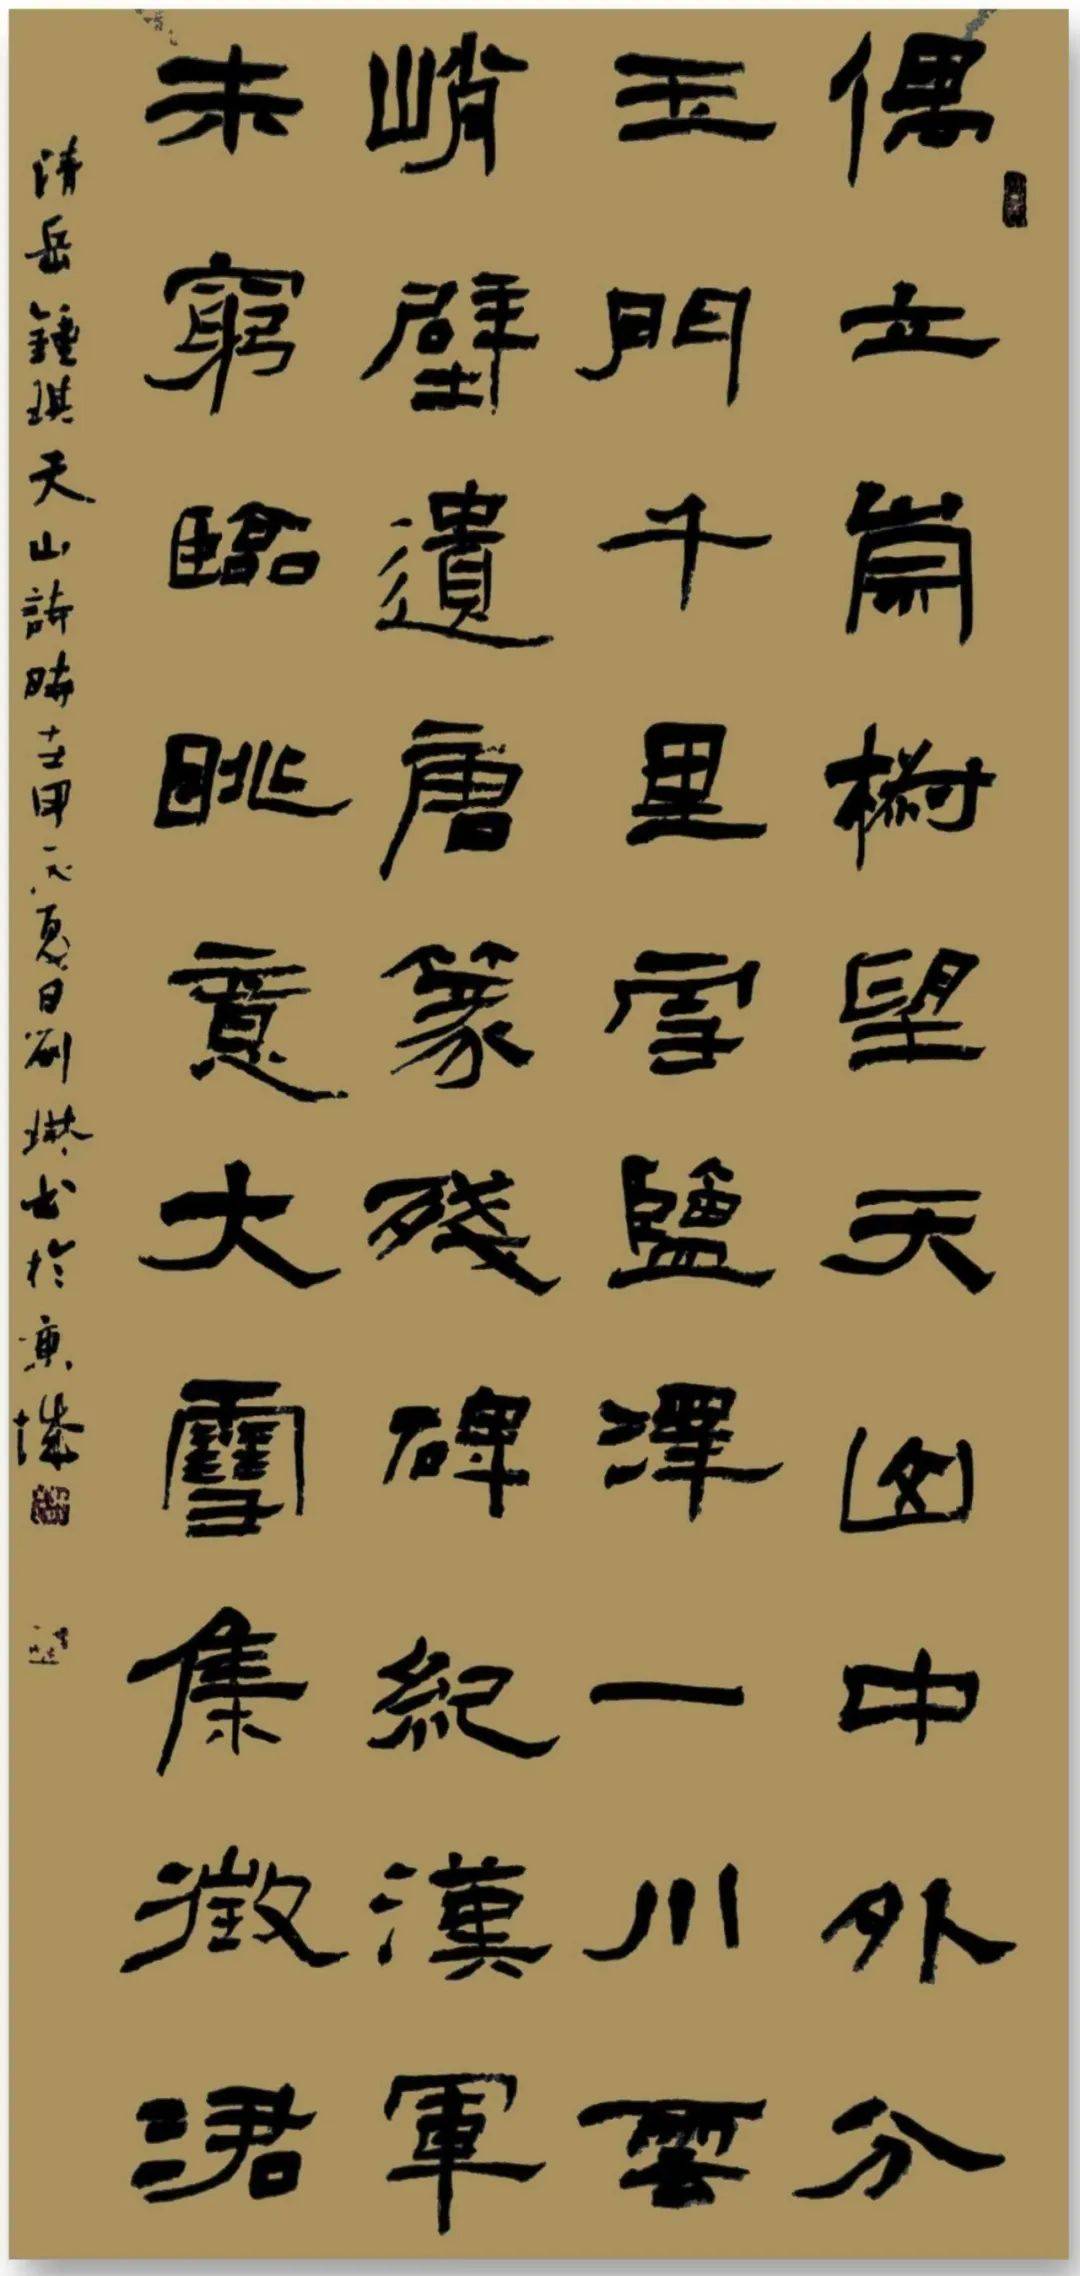 偶立崇椒望天山中外分
玉門千里雪鹽澤一川雲
峭壁遺唐篆殘碑紀漢軍
未窮臨眺意大雪集徵涒
清岳鍾琪天山詩時在甲辰夏日劉琳书於京